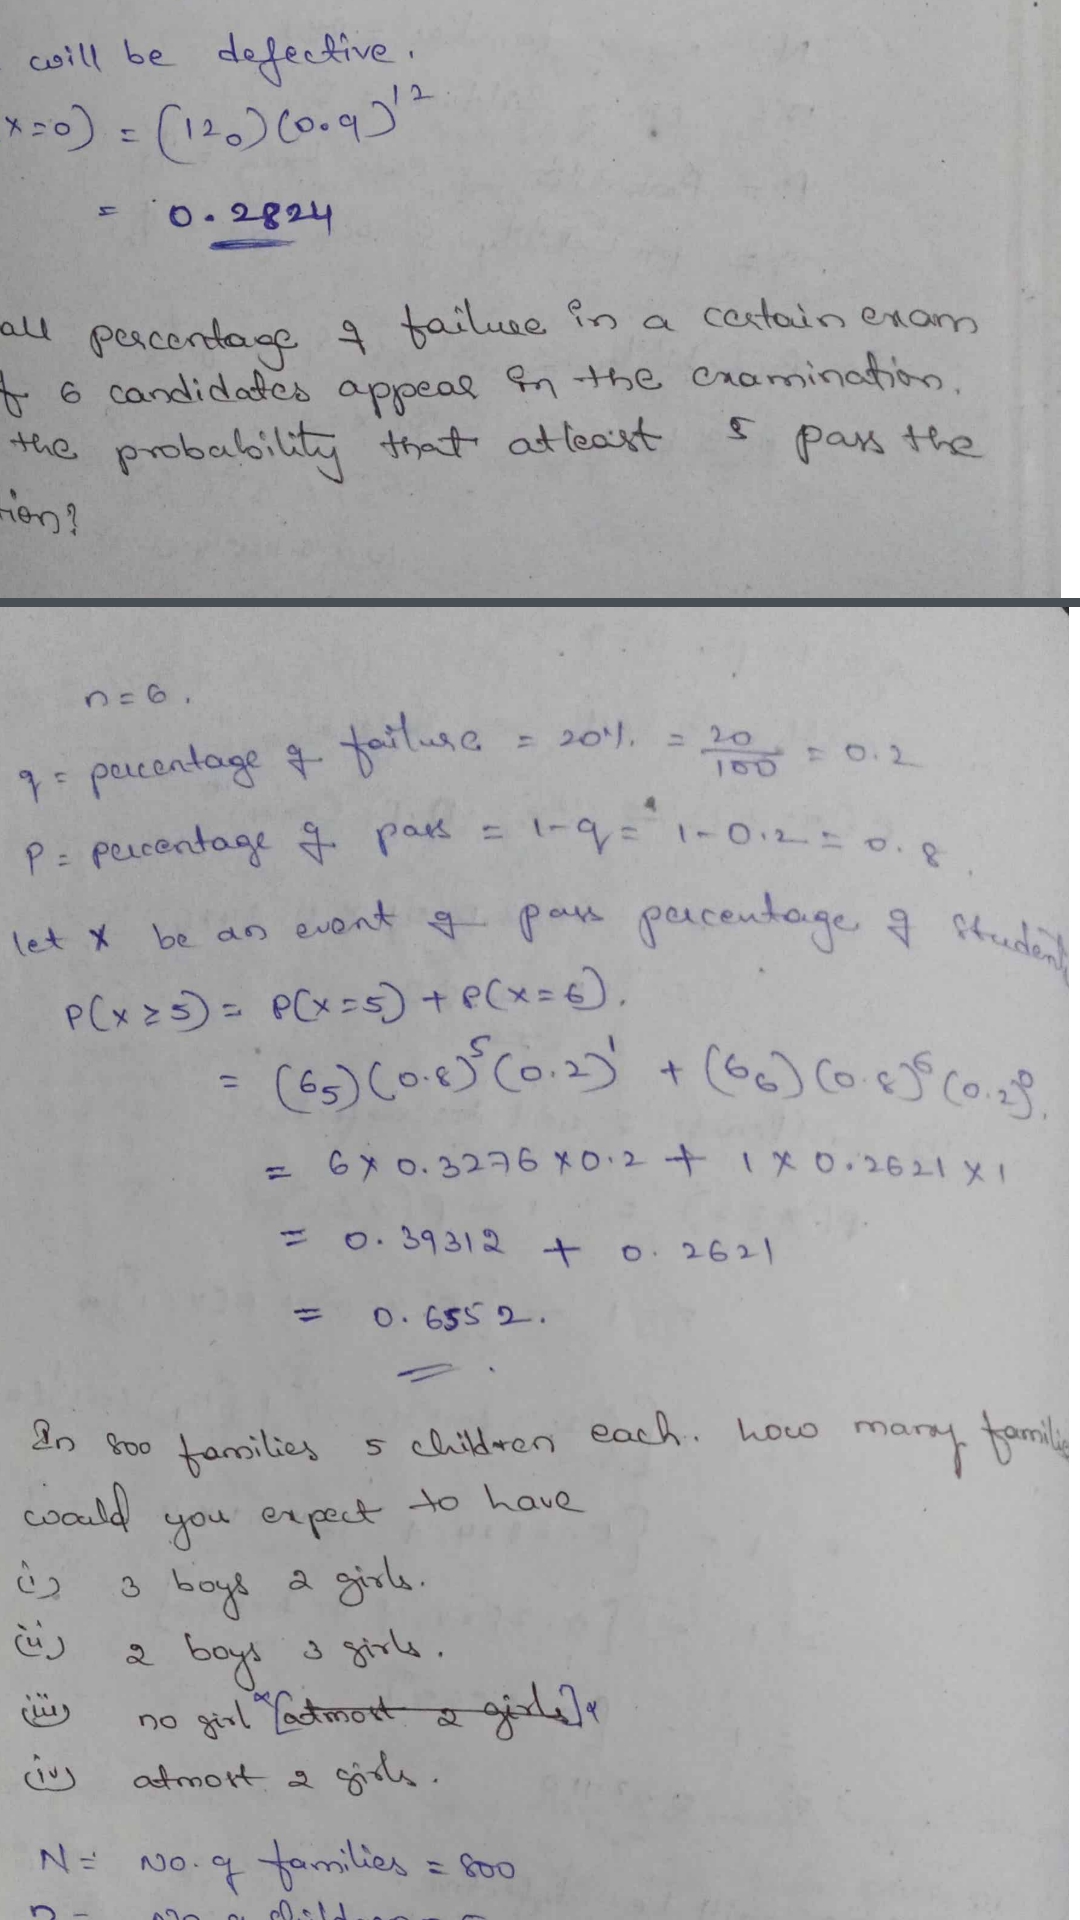 will be defective.
x=0) = (12₀)(0.9)¹²
= 0.2824
all percentage of failure in a certain exam
f 6 candidates appear in the examination.
the probability that atleast 5 pass the
tion?
n=6.
q = percentage of failure = 20% = 20/100 = 0.2
P = percentage of pass = 1-q = 1-0.2 = 0.8.
let x be an event of pass percentage of student
P(x≥5) = P(x=5) + P(x=6).
= (6₅)(0.8)⁵(0.2)¹ + (6₆)(0.8)⁶(0.2)⁰.
= 6×0.3276×0.2 + 1×0.2621×1
= 0.39312 + 0.2621
= 0.6552.
In 800 families 5 children each. how many familie
would you expect to have
(i) 3 boys 2 girls.
(ii) 2 boys 3 girls.
(iii) no girl [atmost 2 girls]
(iv) atmost 2 girls.
N = No. of families = 800